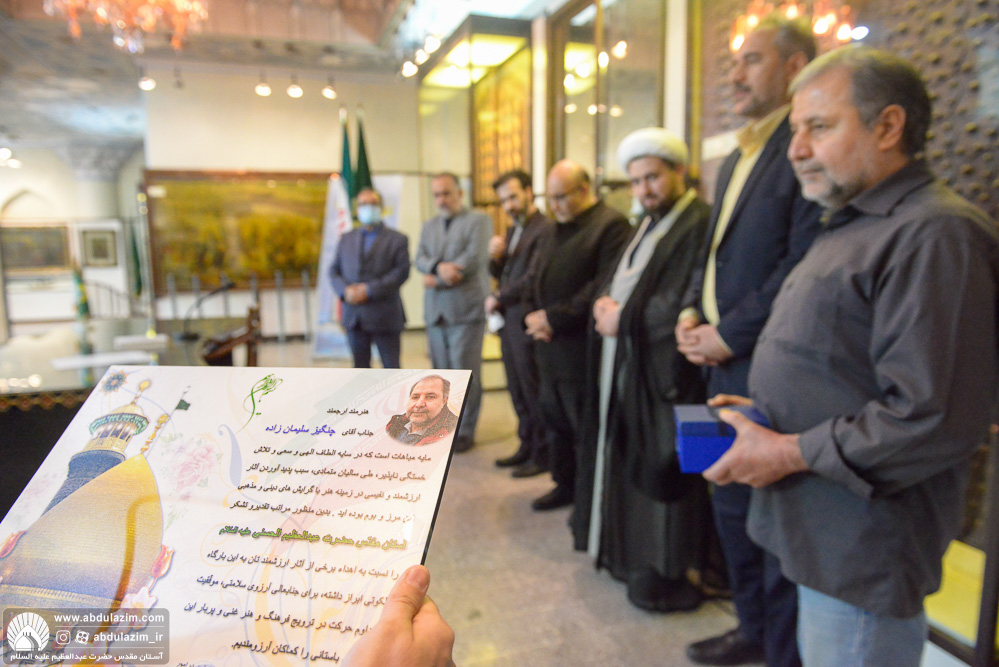 هنرمند ارجمند
جناب آقای چنگیز سلیمان زاده
مایه مباهات است که در سایه الطاف الهی و سعی و تلاش
خستگی ناپذیر، طی سالیان متمادی، سبب پدید آوردن آثار
ارزشمند و نفیسی در زمینه هنر با گرایش های دینی و مذهبی
مرز و بوم بوده اید . بدین منظور مراتب تقدیر و تشکر
آستان مقدس حضرت عبدالعظیم الحسنی علیه السلام
را نسبت به اهداء برخی از آثار ارزشمند تان به این بارگاه
ملکوتی ابراز داشته، برای جنابعالی آرزوی سلامتی، موفقیت
تداوم حرکت در ترویج فرهنگ و هنر غنی و پربار این
باستانی را کماکان آرزومندیم.
www.abdulazim.com
abdulazim_ir
آستان مقدس حضرت عبدالعظیم علیه السلام